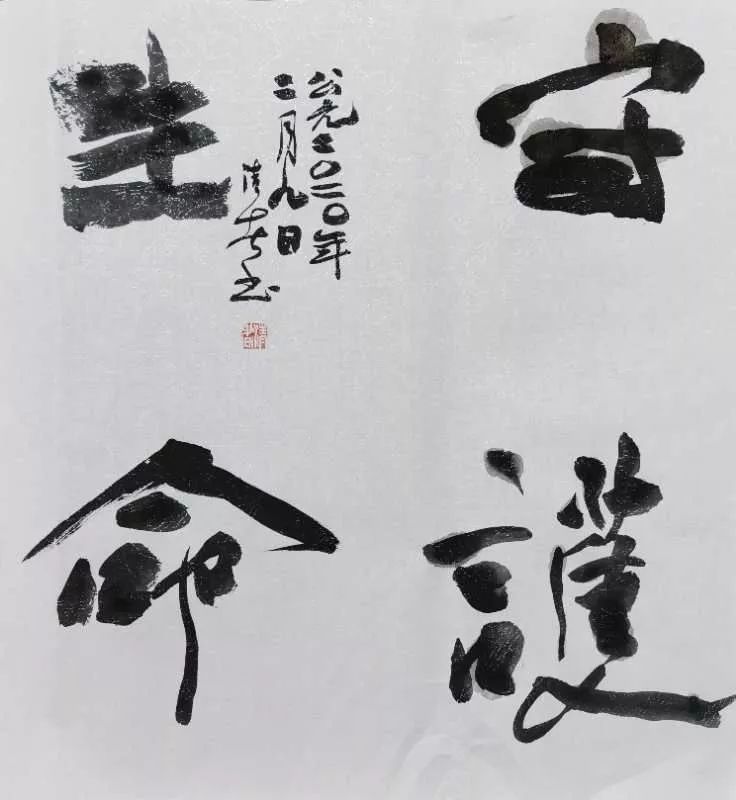 守護
生命
公元二〇二〇年
二月九日
书